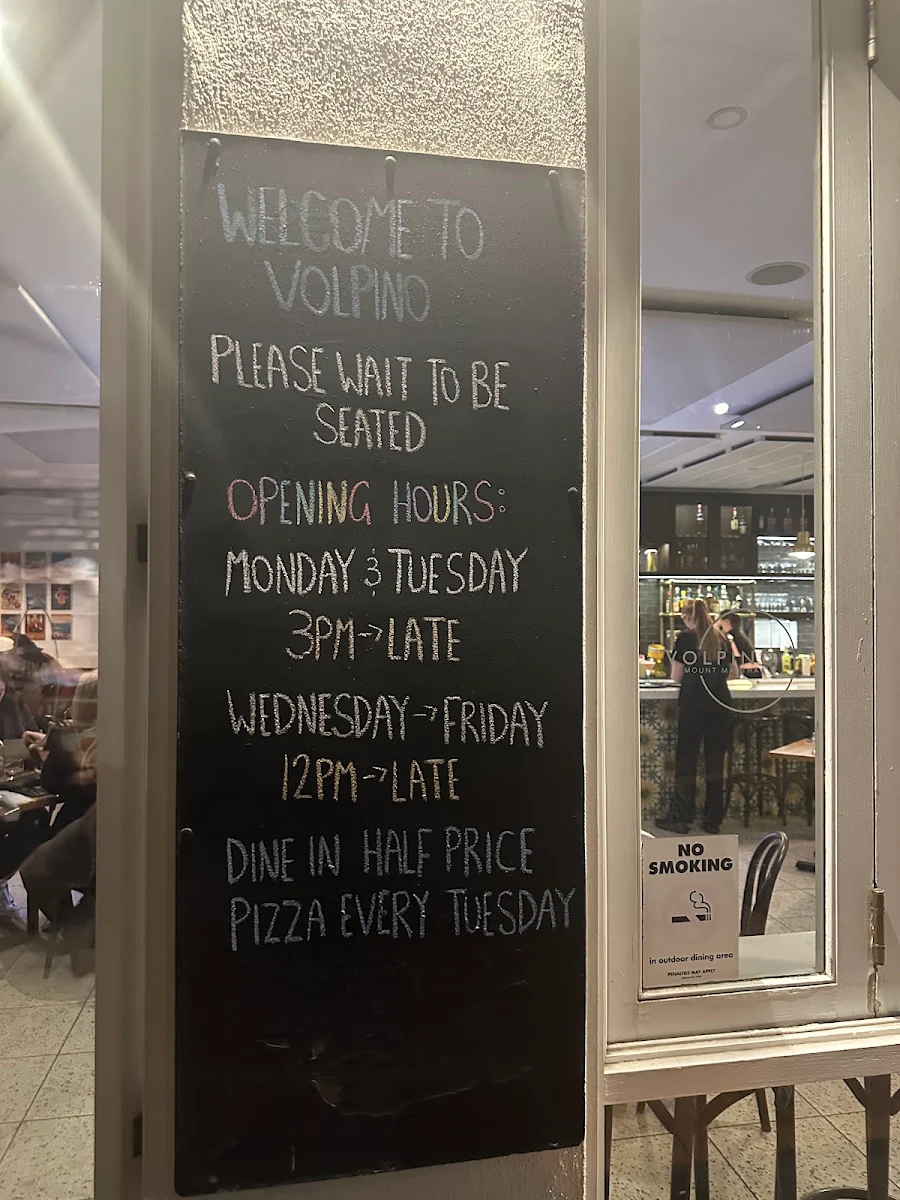 WELCOME TO
VOLPINO
PLEASE WAIT TO BE
SEATED
OPENING HOURS:
MONDAY & TUESDAY
3PM→LATE
WEDNESDAY→FRIDAY
12PM→LATE
DINE IN HALF PRICE
PIZZA EVERY TUESDAY
VOLPINO
MOUNT
NO
SMOKING
in outdoor dining area
PENALTIES MAY APPLY